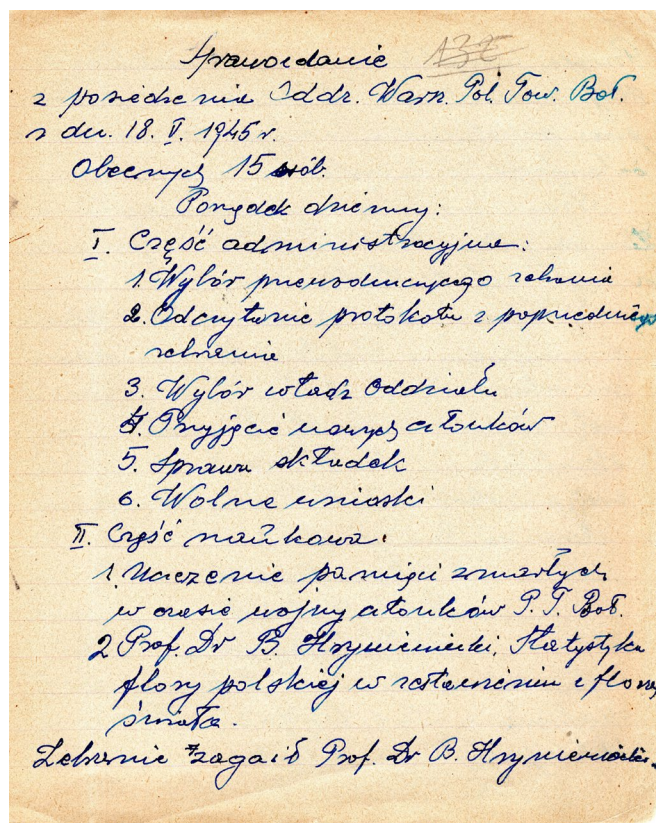 Sprawozdanie
z posiedzenia Oddz. Warsz. Pol. Tow. Bot.
z dn. 18. V. 1945 r.
Obecnych 15 osób.
Porządek dzienny:
I. Część administracyjna:
1. Wybór przewodniczącego zebrania
2. Odczytanie protokołu z poprzedniego
zebrania
3. Wybór władz Oddziału
4. Przyjęcie nowych członków
5. Sprawa składek
6. Wolne wnioski
II. Część naukowa:
1. Uczczenie pamięci zmarłych
w czasie wojny członków P. T. Bot.
2 Prof. Dr B. Hryniewiecki, Statystyka
flory polskiej w zestawieniu z florą
świata.
Zebranie zagaił Prof. Dr B. Hryniewiecki.